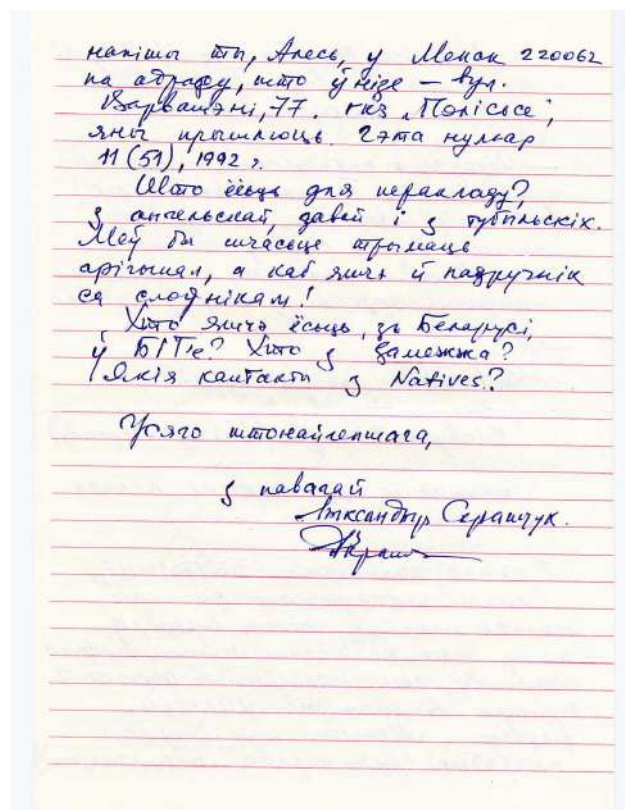 напішы ты, Алесь, у Менск 220062
па адрасу, што ўнізе — вул.
Варвашэні, 77. гкз „Полісьсе",
яны прышлюць. Гэта нумар
11 (51), 1992 г.
Што ёсьць для перакладу?,
з ангельскай, давай і з тубыльскіх.
Меў бы шчасьце атрымаць
арігынал, а каб яшчэ й падручнік
са слоўнікам!
Хто яшчэ ёсьць, зь Беларусі,
ў БІТ'е? Хто з замежжа?
Якія кантакты з Natives?
Усяго штонайлепшага,
з павагай